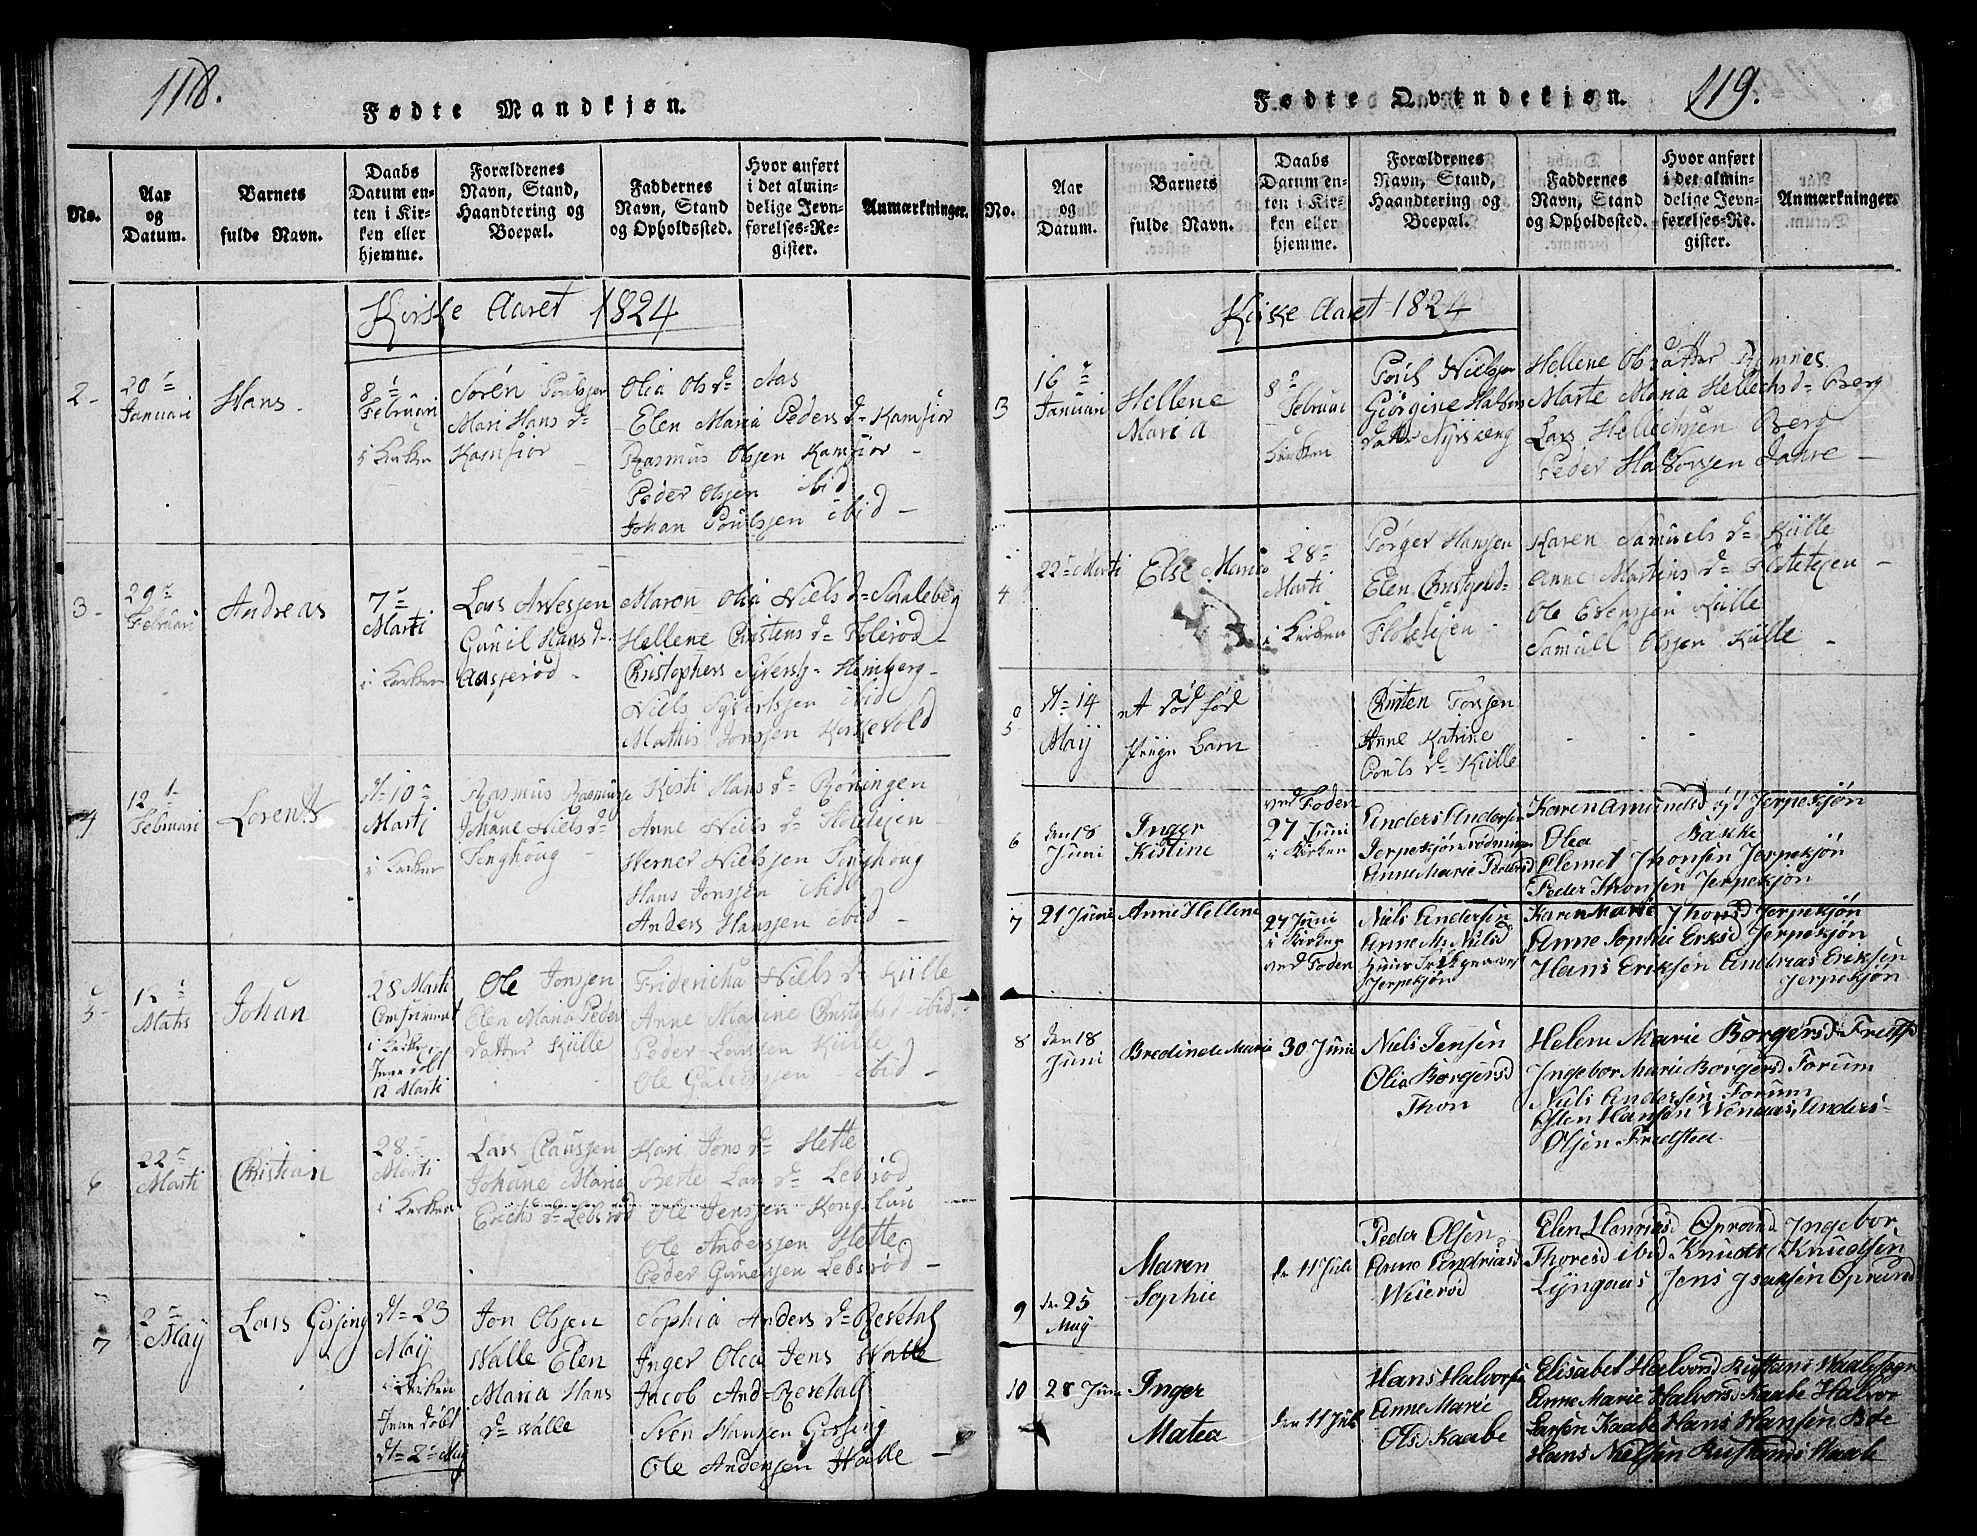 118.
Fødte Mandkjøn.
No.
Aar
og
Datum.
Barnets
fulde Navn.
Daabs
Datum en-
ten i Kir-
ken eller
hjemme.
Forældrenes
Navn, Stand,
Haandtering og
Boepæl.
Faddernes
Navn, Stand
og Opholdssted.
Hvor anført
i det almin-
delige Jevn-
førelses-Re-
gister.
Anmærkninger.
Kirke Aaret 1824
2-
20
Januari
Hans
8
Februari
i Kirken
Sørén Poulsjen
Mari Hans d
Kamfior
Olia Ols d Aas
Elen Maria Peders d Kamfior
Rasmus Olsjen Kamfior
Peder Olsjen ibid
Johan Poulsjen ibid
3-
29
Februari
Andreas
7
Marti
i Kirken
Lars Arvesjen
Gunil Hans d
Aasjerød
Maron Olia Niels d Schaleberg
Hellene Christens d Tolerød
Christophers Syvers Hemberg
Niels Syvertsjen ibid
Mathis Jonsjen Kirkevold
4
12
Februari
Lorents
d 10
Marti
i Kirken
Rasmus Rasmusje
Johane Niels d
Tenghoug
Kisti Hans d Røningen
Anne Niels d Flotetejen
Werner Nielsjen Tenghoug
Hans Jonsjen ibid
Anders Hansjen ibid
5-
12
Mats
Johan
28 Marti
Comfirmert
i Kirken
12 Marti
Ole Jonsjen
Elen Maria Peders
datter Külle
Fridericha Niels d Külle
Anne Maline Christophs d ibid
Peder Larsjen Külle
Ole Gulversjen ibid
6
22
Marti
Christian
28
Marti
i Kirken
Lars Clausjen
Johane Maria
Erichs d Lebsrød
Kari Jens d Hette
Berte Lars d Lebsrød
Ole Jensjen Kongslau
Ole Andersjen Hette
Peder Gunersjen Lebsrød
7
2
Maÿ
Lars Gissing
d 23
Maÿ
i Kirken
d 2 Maÿ
Jon Olsjen
Walle Elen
Maria Hans
d Walle
Sophia Anders d Revetal
Inger Olea Jens Walle
Jacob And Revetall
Sven Hansen Gissing
Ole Andersjen Walle
119.
Fødte Qvindekjøn.
No.
Aar
og
Datum.
Barnets
fulde Navn.
Daabs
Datum en-
ten i Kir-
ken eller
hjemme.
Forældrenes
Navn, Stand,
Haandtering og
Boepæl.
Faddernes
Navn, Stand
og Opholdssted.
Hvor anført
i det almin-
delige Jevn-
førelses-Re-
gister.
Anmærkninger.
Kirke Aaret 1824
3
16
Januari
Hellene
Maria
8
Februari
Kirken
Poül Nielsjen
Giørgine Halvors
datter Nyriseng
Hellene Ols datter Ramnes
Marte Maria Hellechs d Berg
Lars Hellechsjen Berg
Peder Halvorsjen Jahre
4
22 Marti
Else Maria
28
Marti
i Kirken
Børger Hansjen
Elen Christophd
Flotetejen
Karen Samuels d Külle
Anne Martins d Flotetejen
Ole Evensjen Külle
Samüll Olsjen Külle
5
d 14
Maÿ
et død fød
Pige Barn
Christen Torsjen
Anne Katrine
Pouls d Külle
6
den 18
Juni
Inger
Kistine
ved Foder
27 Juni
i Kirken
Anders Andersen
Jerpekjøn
Anne Marie Pedersd
Karen Amundsd Jerpekjøn
Olea Bakke
Clemet Thorsen Jerpekjøn
Peder Thorsen Jerpekjøn
7
21 Juni
Anne Hellene
27 Juni
i Kirken
ved Foden
Niels Andersen
Anne M. Nilsd
Jerpekjøn
Karen Marie Thorsd Jerpekjøn
Anne Sophie Eriksd Jerpekjøn
Hans Eriksen Andreas Eriksen
Jerpekjøn
8
den 18
Juni
Bredinde Marie
30 Juni
Niels Jensen
Olia Borgersd
Thon
Helene Marie Borgersd Fredsted
Ingebor Marie Borgersd Forum
Niels Andersen Forum
Esten Hansen Wennas, Anders
Olsen Fredsted
9
den 25
May
Maren
Sophie
d 11 Juli
Peder Olsen
Anne Andriasd
Weierød
Elen Hansd Oprund Ingebor
Thoresd ibid Knudt Knudsen
Lyngaas Jens Isaksen Oprund
10
28 Juni
Inger
Matea
den 11 Juli
Hans Halvorsen
Anne Marie
Olsd Kaabe
Elisabet Halvorsd
Anne Marie Halvorsd Kaabe Halvor
Larsen Kaabe Hans Hansen Bøe
Hans Nielsen